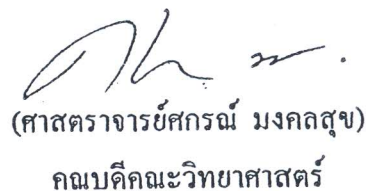 (ศาสตราจารย์ศกรณ์ มงคลสุข)
คณบดีคณะวิทยาศาสตร์